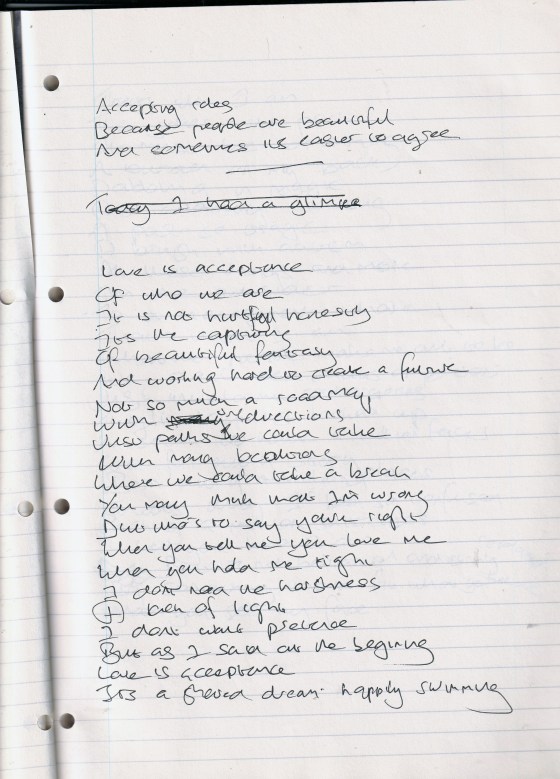 Accepting roles
Because people are beautiful
And sometimes its easier to agree
Today I had a glimpse
Love is acceptance
Of who we are
It is not hurtful honesty
Its the capturing
Of beautiful fantasy
And working hard to create a future
Not so much a roadmap
With directions
Just paths we could take
With many locations
Where we could take a break
You may think that I'm wrong
But who's to say your right
When you tell me you love me
When you hold me tight
I dont need the harshness
of light
I dont want pretence
But as I said at the begining
Love is acceptance
Its a shared dream happily swimming